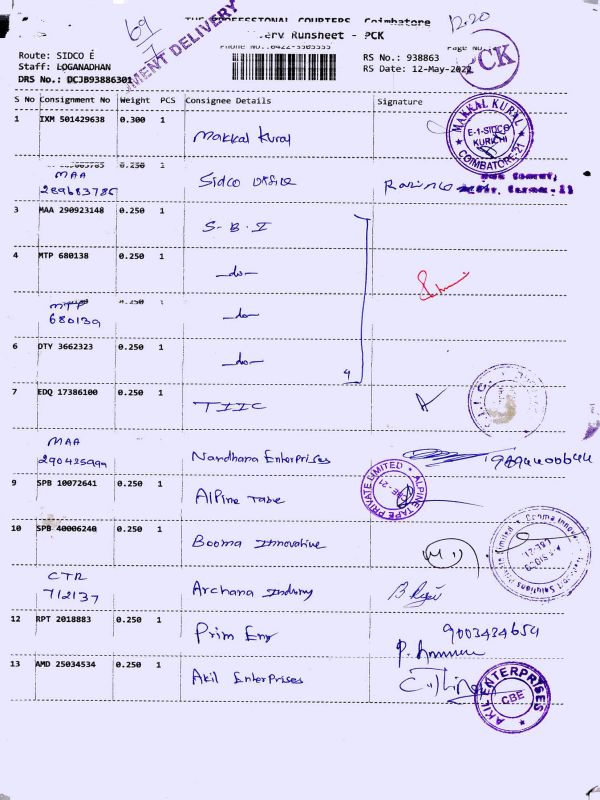 69
12.20
THE PROFESSIONAL COURIERS, Coimbatore
MENT DELIVERY
Runsheet - PCK
Phone No.:0422-3303333
Page No.
CK
Route: SIDCO E
Staff: LOGANADHAN
DRS No.: DCJB93886301
RS No.: 938863
RS Date: 12-May-2022
S No Consignment No Weight PCS Consignee Details Signature
1 IXM 501429638 0.300 1 Makkal Kural
MAKKAL KURAL
E-1-SIDCO
KURICHI
COIMBATORE-21
0.250 1
MAA
289683785 Sidco Office
3 MAA 290923148 0.250 1 S.B.I
4 MTP 680138 0.250 1 -do-
MTP 0.250 1
680139 -do-
6 DTY 3662323 0.250 1 -do-
4
7 EDQ 17386100 0.250 1 TIIC
MAA
290425999 Nandhana Enterprises 9894400644
9 SPB 10072641 0.250 1 Alpine Tape
ALPINE TAPE PRIVATE LIMITED
CBE-21
10 SPB 40006240 0.250 1 Booma Innovative
CTR
712137 Archana Industry
12 RPT 2018883 0.250 1 Prim Eng 9003424654
13 AMD 25034534 0.250 1 Akil Enterprises
AKIL ENTERPRISES
CBE